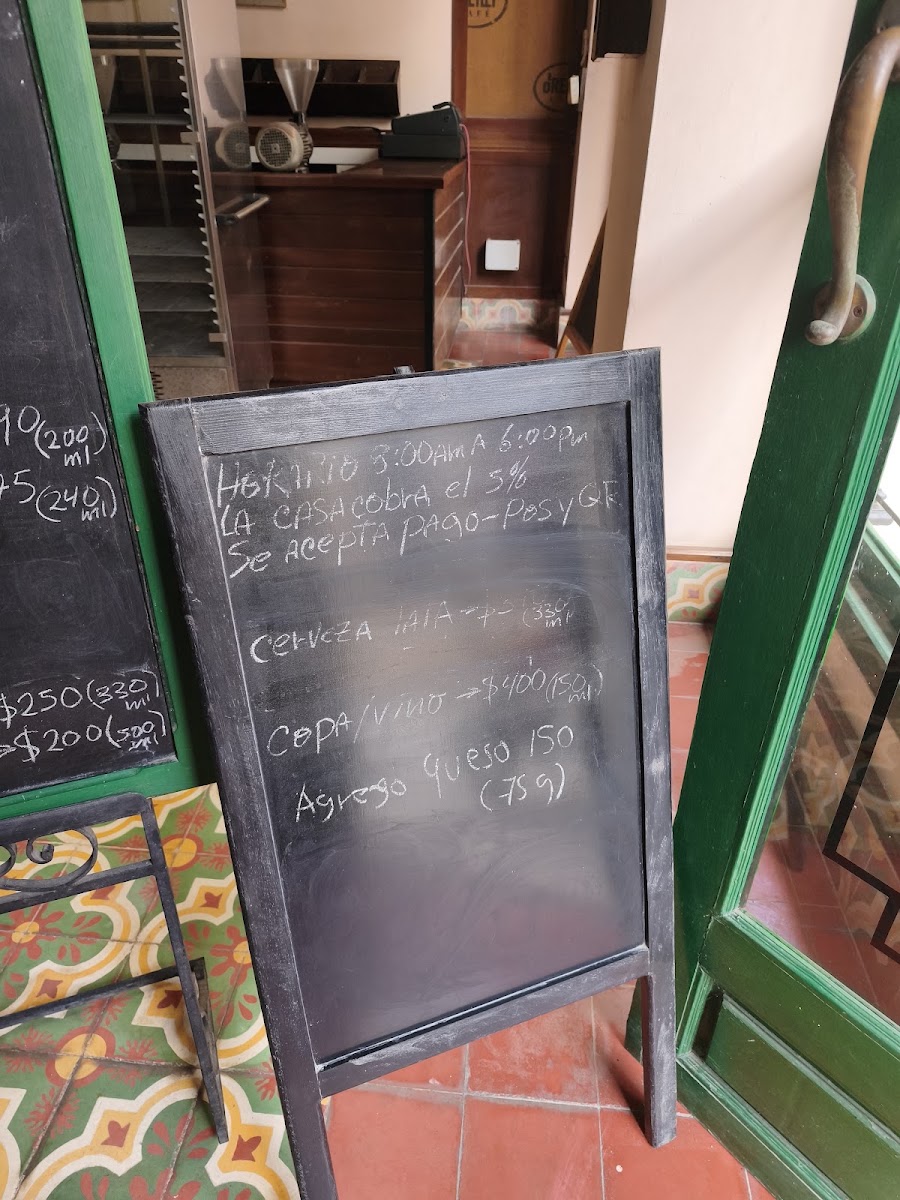 90 (200 ml)
75 (240 ml)
$250 (330 ml)
$200 (500 ml)
CAFÉ
HORARIO 9:00AM A 6:00pm
LA CASA cobra el 5%
Se ACEPTA PAGO-POS y QR
cerveza lata → (330 ml
COPA/vino → $400 (150 ml)
Agrego queso 150
(75 g)